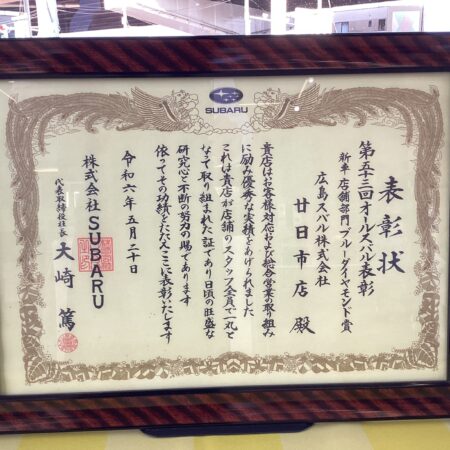 SUBARU
表彰状
第五十三回オールスバル表彰
新車 店舗部門 ブルーダイヤモンド賞
広島スバル株式会社
廿日市店 殿
貴店はお客様対応および総合営業の取り組み
に励み優秀な実績をあげられました
これは貴店が店舗のスタッフ全員で一丸と
なって取り組まれた証であり日頃の旺盛な
研究心と不断の努力の賜であります
依ってその功績をたたえここに表彰いたします
令和六年五月二十日
株式会社SUBARU
代表取締役社長 大崎 篤